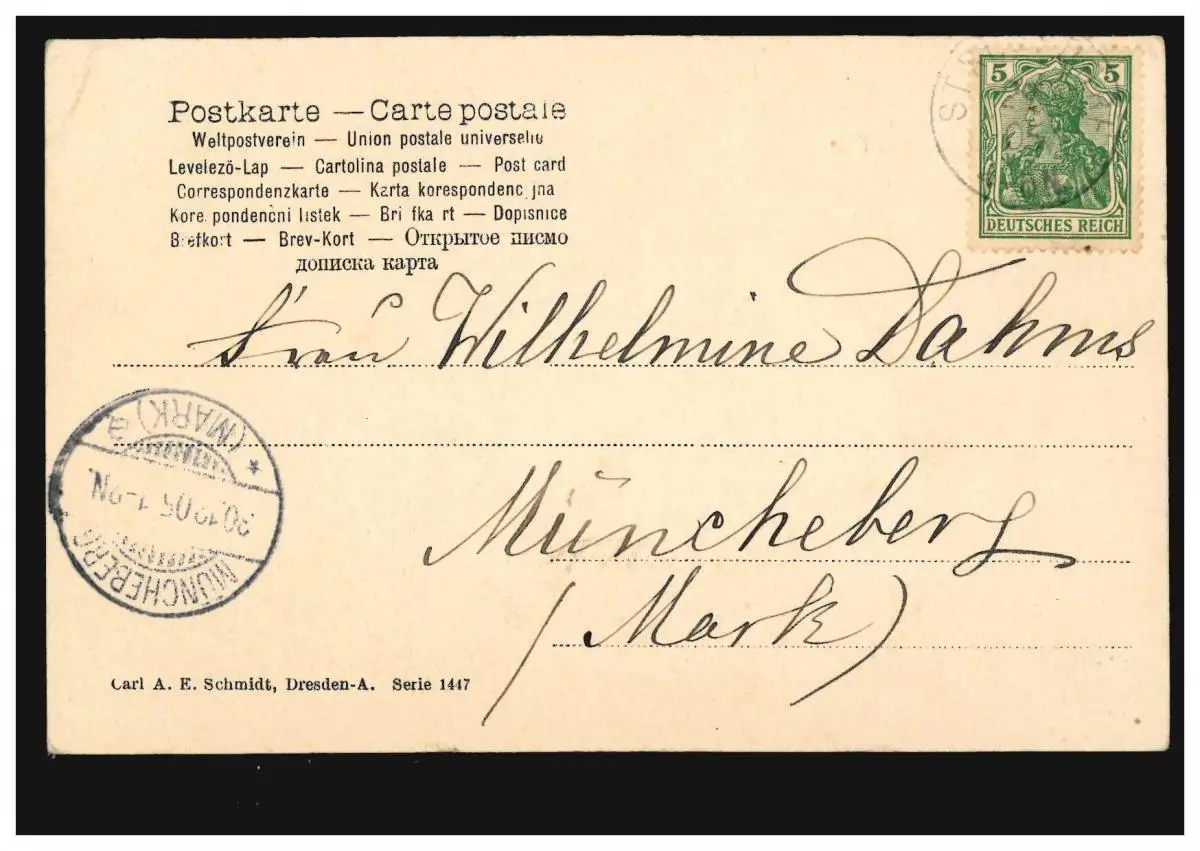 Postkarte — Carte postale
Weltpostverein — Union postale universelle
Levelezö-Lap — Cartolina postale — Post card
Correspondenzkarte — Karta korespondencyjna
Kore pondenčni listek — Bri fka rt — Dopisnice
Brefkort — Brev-Kort — Открытое писмо
дописка карта
5 5
DEUTSCHES REICH
Frau Wilhelmine Dahms
Müncheberg
(Mark)
MÜNCHEBERG
30.12.05.1-2N.
* (MARK) a.
Carl A. E. Schmidt, Dresden-A. Serie 1447